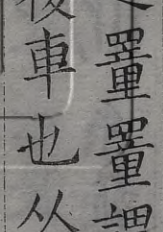 罿罿謂
車也从